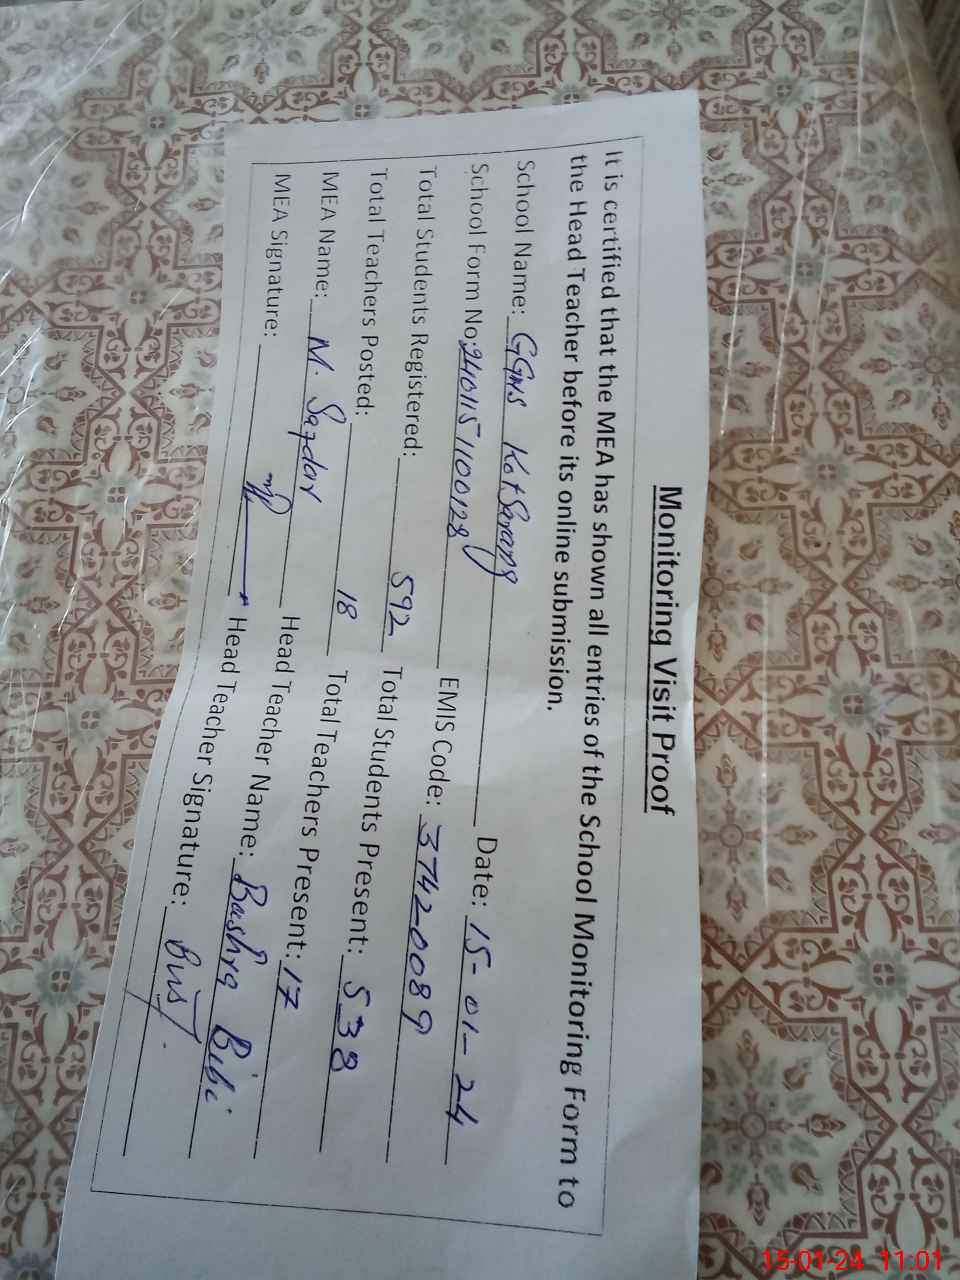 Monitoring Visit Proof
It is certified that the MEA has shown all entries of the School Monitoring Form to
the Head Teacher before its online submission.
School Name: GGHS Kot Sarang Date: 15-01-24
School Form No: 2401151100128 EMIS Code: 37420089
Total Students Registered: 592 Total Students Present: 538
Total Teachers Posted: 18 Total Teachers Present: 17
MEA Name: M. Safdar Head Teacher Name: Bushra Bibi
MEA Signature: Head Teacher Signature:
15-01-24 11:01